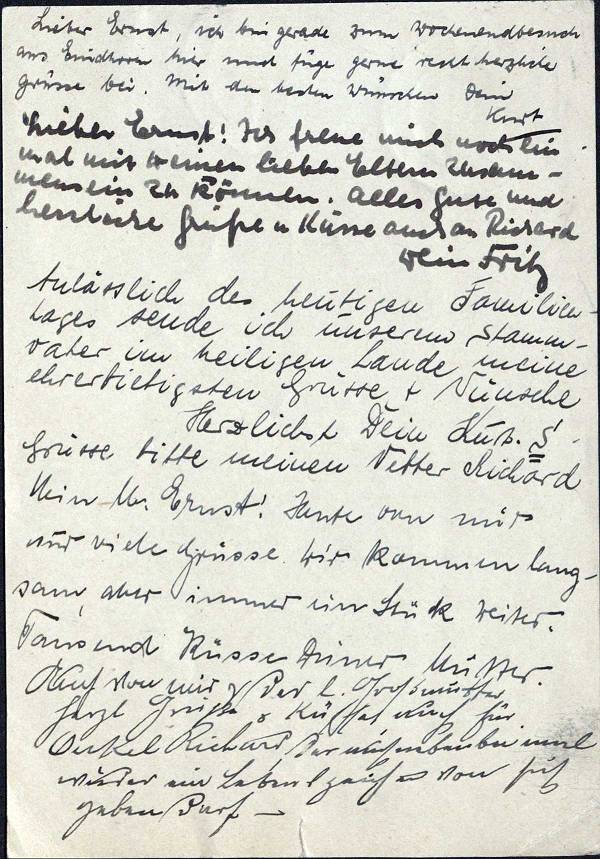 Lieber Ernst, ich bin gerade zum Wochenendbesuch
aus Eindhoven hier und füge gerne recht herzliche
grüsse bei. Mit den besten Wünschen Dein
Kurt
Lieber Ernst! Ich freue mich noch ein
mal mit Deinen lieben Eltern zusam-
mensein zu können. Alles gute und
herzliche Grüße u Küsse auch an Richard
Dein Fritz
Anlässlich des heutigen Familien-
tages sende ich unserem Stamm-
vater im heiligen Lande meine
ehrerbietigsten Grüsse + Wünsche
Herzlichst Dein Kurt. S.
Grüsse bitte meinen Vetter Richard
Mein lb. Ernst! Heute von mir
nur viele Grüsse. Wir kommen lang-
sam, aber immer ein Stück weiter.
Tausend Küsse Deiner Mutter.
Auch von mir & der l. Grossmutter
herzl Grüße & Küsse auch für
Onkel Richard, der auch nebenbei mal
wieder ein Lebenszeichen von sich
geben darf —